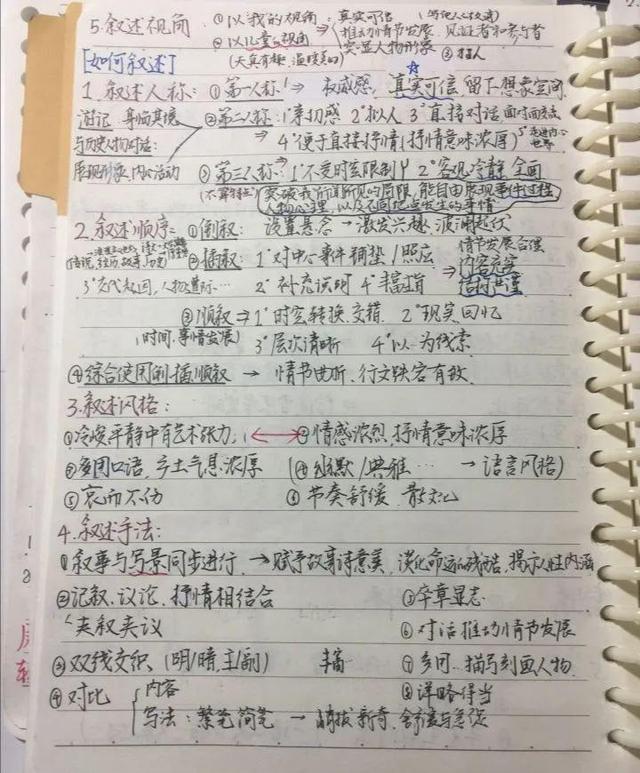 5.叙述视角 ①以"我"的视角 真实可信
②以儿童的视角 推动情节发展 见证者和参与者
(天真有趣,温暖美好) 突显人物形象
[如何叙述]
1.叙述人称:①第一人称⇒ 权威感,真实可信 留下想象空间
②第二人称:1°亲切感 2°拟人 3°直接对话
与历史人物对话: 4°便于直接抒情(抒情意味浓厚)
展现形象、内心活动 ③第三人称⇒1°不受时空限制 2°客观冷静 全面
突破我所见所见的局限,能自由展现事件过程
人物心理 以及不同地点发生的事情
2.叙述顺序:①倒叙: 设置悬念→激发兴趣,波澜起伏
②插叙:1°对中心事件铺垫/照应 情节发展合理
2°补充说明 4°丰富 内容充实
结构严谨
③顺叙⇒1°时空转换,交错 2°现实回忆
(时间、事情发展) 3°层次清晰 4°以 为线索
④综合使用倒插顺叙→ 情节曲折、行文跌宕有致
3.叙述风格:
①冷峻平静中有艺术张力, ②情感浓烈,抒情意味浓厚
乡土气息浓厚 (④幽默/典雅…→语言风格)
⑤哀而不伤 ⑥节奏舒缓 散文化
4.叙述手法:
①叙事与写景同步进行,→赋予故事诗意美,淡化命运的残酷,揭示人性内涵
②记叙、议论、抒情相结合 ⑤卒章显志
夹叙夹议 ⑥对话推动情节发展
③双线交织、(明/暗,主/副) ⑦多问…描写刻画人物
④对比 内容 ⑧详略得当
写法:繁笔简笔→ 峭拔新奇,舒缓与急促